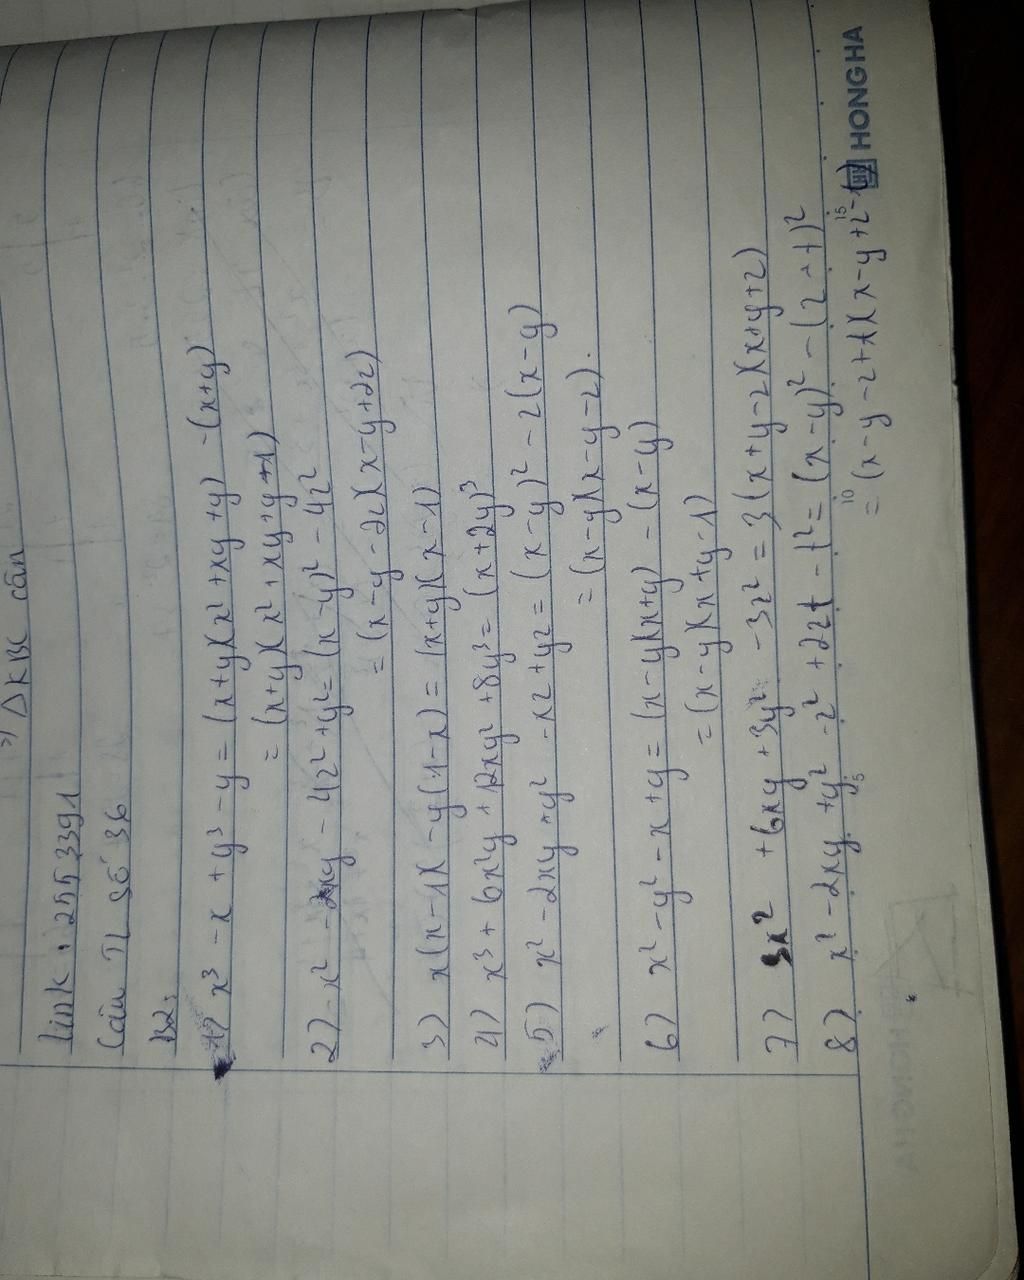 =) △KBC cân
link : 2553391
Câu TL số 36
B2:
1) x³ - x + y³ - y = (x+y)(x² + xy + y) - (x+y)
= (x+y)(x² + xy + y + 1)
2) - x² - 2xy - 4z² + y² = (x-y)² - 4z²
= (x-y-2z)(x-y+2z)
3) x(x-1)x - y(1-x) = (x+y)(x-1)
4) x³ + 6x²y + 12xy² + 8y³ = (x+2y)³
5) x² - 2xy + y² - xz + yz = (x-y)² - z(x-y)
= (x-y)(x-y-z).
6) x² - y² - x + y = (x-y)(x+y) - (x-y)
= (x-y)(x+y-1)
7) 3x² + 6xy + 3y² - 3z² = 3(x+y-z)(x+y+z)
8) x² - 2xy + y² - z² + 2zt - t² = (x-y)² - (z-t)²
= (x-y-z+t)(x-y+z-t)
5 10 15
HONG HA